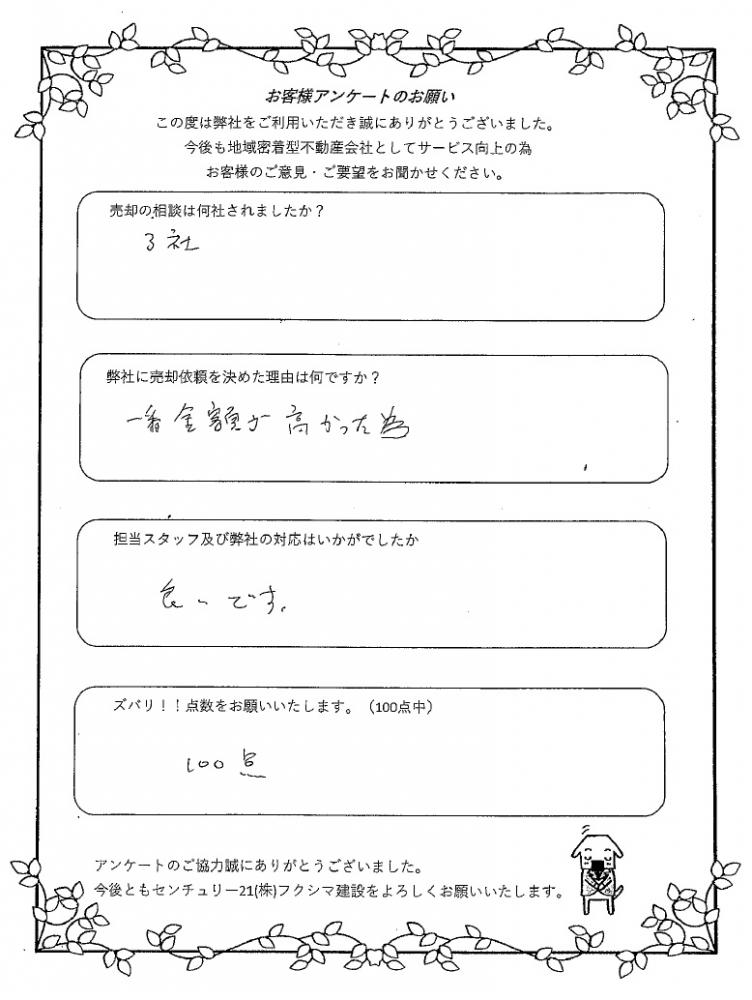 お客様アンケートのお願い
この度は弊社をご利用いただき誠にありがとうございました。
今後も地域密着型不動産会社としてサービス向上の為
お客様のご意見・ご要望をお聞かせください。
売却の相談は何社されましたか？
3社
弊社に売却依頼を決めた理由は何ですか？
一番金額が高かった為
担当スタッフ及び弊社の対応はいかがでしたか
良いです。
ズバリ！！点数をお願いいたします。（100点中）
100点
アンケートのご協力誠にありがとうございました。
今後ともセンチュリー21(株)フクシマ建設をよろしくお願いいたします。